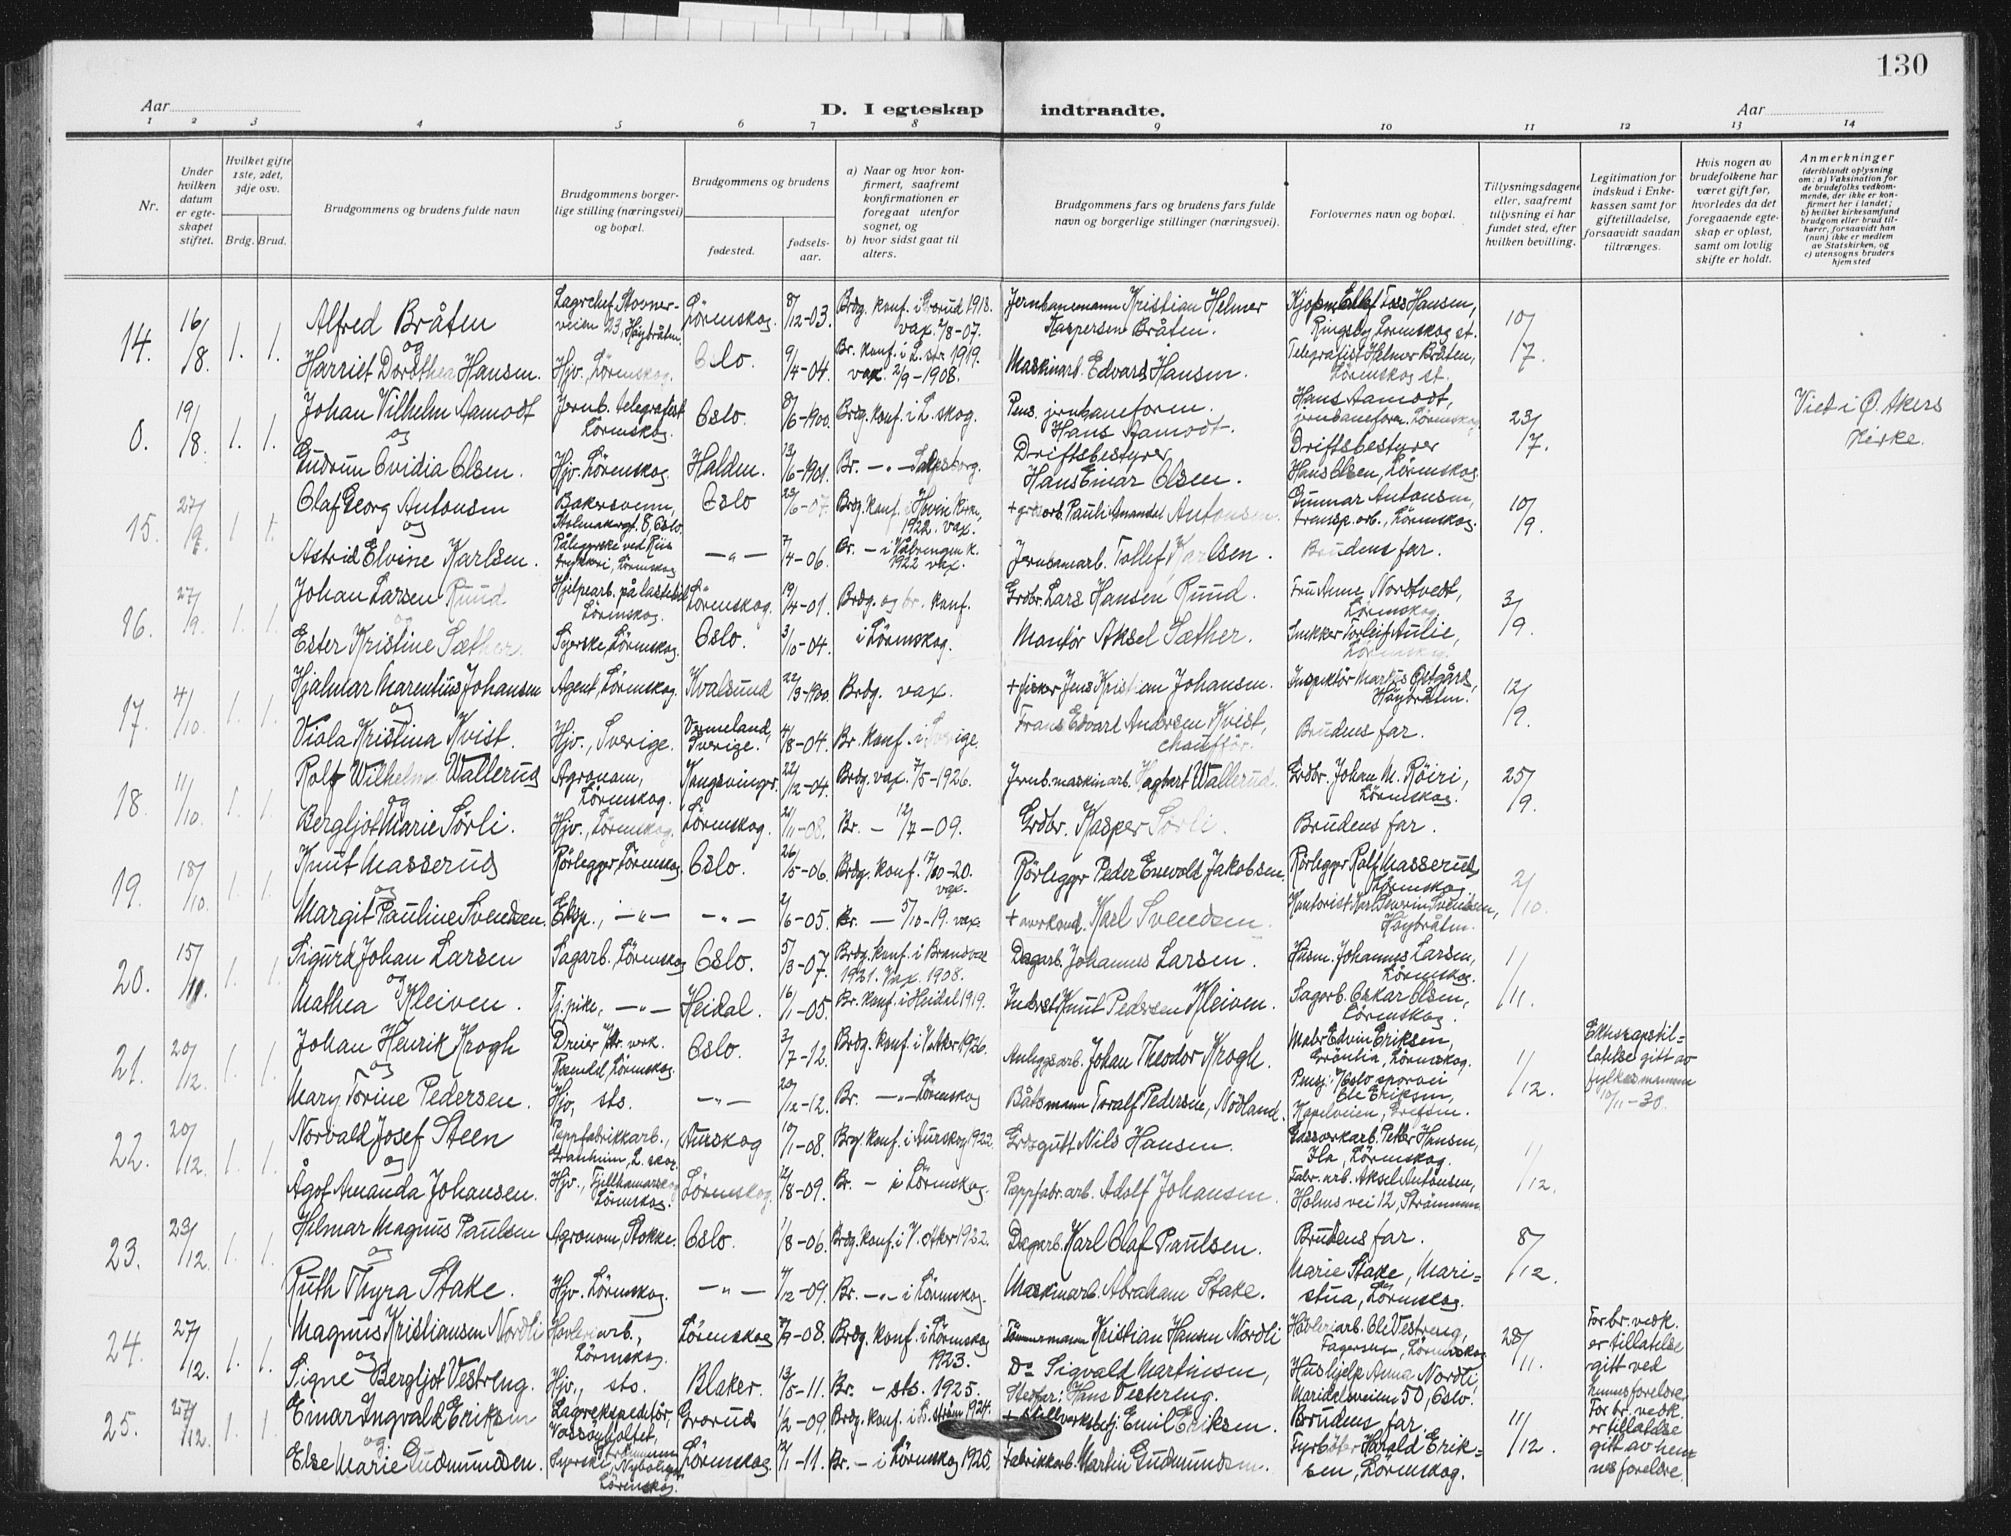 130
Aar
D. I egteskap indtraadte.
Aar
1 2 3 4 5 6 7 8 9 10 11 12 13 14
Nr.
Under hvilken datum er egteskapet stiftet.
Hvilket gifte 1ste, 2det, 3dje osv.
Brdg. Brud.
Brudgommens og brudens fulde navn
Brudgommens borgerlige stilling (næringsvei) og bopæl.
Brudgommens og brudens
fødested.
fødselsaar.
a) Naar og hvor konfirmert, saafremt konfirmationen er foregaat utenfor sognet, og
b) hvor sidst gaat til alters.
Brudgommens fars og brudens fars fulde navn og borgerlige stillinger (næringsvei).
Forlovernes navn og bopæl.
Tillysningsdagene eller, saafremt tillysning ei har fundet sted, efter hvilken bevilling.
Legitimation for indskud i Enkekassen samt for giftetilladelse, forsaavidt saadan tiltrænges.
Hvis nogen av brudefolkene har været gift før, hvorledes da det foregaaende egteskap er opløst, samt om lovlig skifte er holdt.
Anmerkninger (deriblandt oplysning om: a) Vaksination for de brudefolks vedkommende, der ikke er konfirmert her i landet; b) hvilket kirkesamfund brudgom eller brud tilhører, forsaavidt han (nun) ikke er medlem av Statskirken, og c) utensogns bruders hjemsted
14. 16/8 1. 1. Alfred Bråten Lagrchef, Stovnerveien 23, Høybråten. Lörenskog. 8/12-03. Brdg. konf. i Grorud 1918. vax. 7/8-07. Jernbanemann Kristian Helmer Kaspersen Bråten. Hansen, Ringsby, Lörenskog st. 10/7.
og
Harriet Dorothea Hansen. Hjv. Lörenskog. Oslo. 9/4-04. Br. konf. i L. str 1919. vax 2/9-1908. Maskinarb. Edvard Hansen. Telegrafist Helmer Bråten, Lörenskog st.
0. 19/8. 1. 1. Johan Vilhelm Aamodt Jernb. telegrafist Lörenskog. Oslo. 8/6-1900. Brdg. konf. i L. skog. Pens. jernbaneform. Hans Aamodt. Hans Aamodt, jernbaneform. Lörenskog 23/7. Viet i Ø. Akers Kirke.
og
Gudrun Ovidia Olsen. Hjv. Lörenskog. Halden. 13/6-1901. Br. -"- Sarpsborg. Driftsbestyrer, Hans Einar Olsen. Driftsbestyrer Hans Olsen, Lörenskog.
15. 27/9 1 1. Olaf Georg Antonsen Bakersvenn, Stolmakergt. 8, Oslo. Oslo 23/6-07. Brdg. konf. i Hovin kirke, 1922. vax. + grdarb. Pauli Amandel Antonsen. Gunnar Antonsen, transp. arb., Lörenskog. 10/9.
og
Astrid Elvine Karlsen. Påleggerske ved Riis trykkeri, Lörenskog -"- 7/4-06. Br. - i Vålerengen k. 1922 vax. Jernbanarb. Tollef Karlsen. Brudens far.
16. 27/9. 1. 1. Johan Larsen Ruud. Hjelpearb. på lastebil Lörenskog. Lörenskog. 19/4-01. Brdg. og br. konf. i Lörenskog. Grdbr. Lars Hansen Ruud. Fru Anne Nordtvedt, Lörenskog. 3/9.
og
Ester Kristine Sæther. Syerske, Lörenskog. Oslo. 3/10-04. Montör Aksel Sæther. Snekker Torleif Aulie, Lörenskog.
17. 4/10 1. 1. Hjalmar Marentius Johansen Agent, Lörenskog. Kvalsund 22/3-1900. Brdg. vax. + fisker Jens Kristian Johansen. Inspektör Markus Ofstgård, Høybråten. 12/9.
og
Viola Kristina Kvist. Hjv., Sverige. Vermeland, Sverige. 4/8-04. Br. konf. i Sverige. Frans Edvart Andersen Kvist, chaufför. Brudens far.
18. 11/10. 1. 1. Rolf Wilhelm Wallerud Agronom, Lörenskog. Kongsvinger. 22/12-04. Brdg. vax. 7/5-1926. Jernb. maskinarb. Hagbart Wallerud. Grdbr. Johan M. Röiri, Lörenskog. 25/9.
og
Bergljot Marie Sörli. Hjv., Lörenskog. Lörenskog. 21/11-08. Br. - 12/7-09. Grdbr. Kasper Sörli. Brudens far.
19. 18/10. 1. 1. Knut Masserud Rörlegger Lörenskog Oslo. 26/5-06. Brdg. konf. 17/10-20. vax. Rörleggr Peder Enevold Jakobsen. Rörleggr Rolf Masserud, Lörenskog 2/10.
og
Margit Pauline Svendsen. Eksp., -"- -"- 2/6-05. Br. - 5/10-19. vax + Karl Svendsen. Kontorist Svendsen, Høybråten.
20. 15/11. 1. 1. Sigurd Johan Larsen Sagarb. Lörenskog Oslo. 5/3-07. Brdg. konf. i Brandval 1921. Vax. 1908. Dagarb. Johannes Larsen. Husm. Johannes Larsen, Lörenskog. 1/11.
og
Mathea Kleiven. Tj. pike, -"- Heidal. 16/1-05. Br. konf. i Heidal 1919. Inderst Knut Pedersen Kleiven. Sagarb. Oskar Olsen, Lörenskog.
21. 20/12. 1. 1. Johan Henrik Krogh Dreier Lörenskog. Oslo. 3/7-12. Brdg. konf. i V. Aker 1926. Anleggsarb. Johan Theodor Krogh. Maler Edvin Eriksen, Grönlia, Lörenskog. 1/12. Ekteskapstillatelse gitt av fylkesmannen 10/11-30.
og
Mary Torine Pedersen. Hjv. sts. -"- 20/12-12. Br. -"- Lörenskog Båtsmann Toralf Pedersen, Nodland. Pensj. v/ Oslo sporvei Ole Eriksen, Kapelveien, Grefsen.
22. 20/12. 1. 1. Norvald Josef Steen Pappfabrikkarb., Granheim, L. skog. Aurskog 10/1-08. Brg. konf. i Aurskog 1922. Grdsgutt Nils Hansen. Gassverkarb. Petter Hansen, Ila, Lörenskog. 1/12.
og
Ågot Amanda Johansen. Hjv., Fjellhamarskog Lörenskog. Lörenskog. 12/8-09. Br. - i Lörenskog. Pappfabr. arb. Adolf Johansen. Fabr. arb. Aksel Antonsen, Holms vei 12, Strömmen.
23. 23/12. 1. 1. Helmar Magnus Paulsen Agronom, Stokke. Oslo. 1/8-06. Brdg. konf. i V. Aker 1922. Dagarb. Karl Olaf Paulsen. Brudens far. 8/12.
og
Ruth Thyra Stake. Hjv. Lörenskog. -"- 4/12-09. Br. -"- i Lörenskog. Maskinarb. Abraham Stake. Marie Stake, Maristua, Lörenskog.
24. 27/12. 1. 1. Magnus Kristiansen Nordli Hövleriarb., Lörenskog. Lörenskog 7/9-08. Brdg. konf. i Lörenskog 1923. Tömmermann Kristian Hansen Nordli Hövleriarb. Ole Vestreng, Lörenskog 28/11. For br. vedk. er tillatelse gitt ved hennes foreldre
og
Signe Bergljot Vestreng. Hjv., sts. Blaker. 13/5-11. Br. - sts. 1925. Do Sigvald Martinsen, Stedfar: Hans Vestreng. Hushjelp Anna Nordli Maridalsveien 50, Oslo.
25. 27/12. 1 1 Einar Ingvald Eriksen Lagrekspeditör, Grorud 1/2-09. Brdg. konf. i L. ström 1924. + Emil Eriksen. Brudens far. 11/12. For br. vedk. er tillatelse gitt av hennes foreldre.
og
Else Marie Gudmundsen. Syerske, Nyboligen, Lörenskog. Lörenskog 12/1-11. Br. - i Lörenskog 1925. Fabrikkarb. Martin Gudmundsen. Fyrböter Harald Eriksen, Lörenskog.